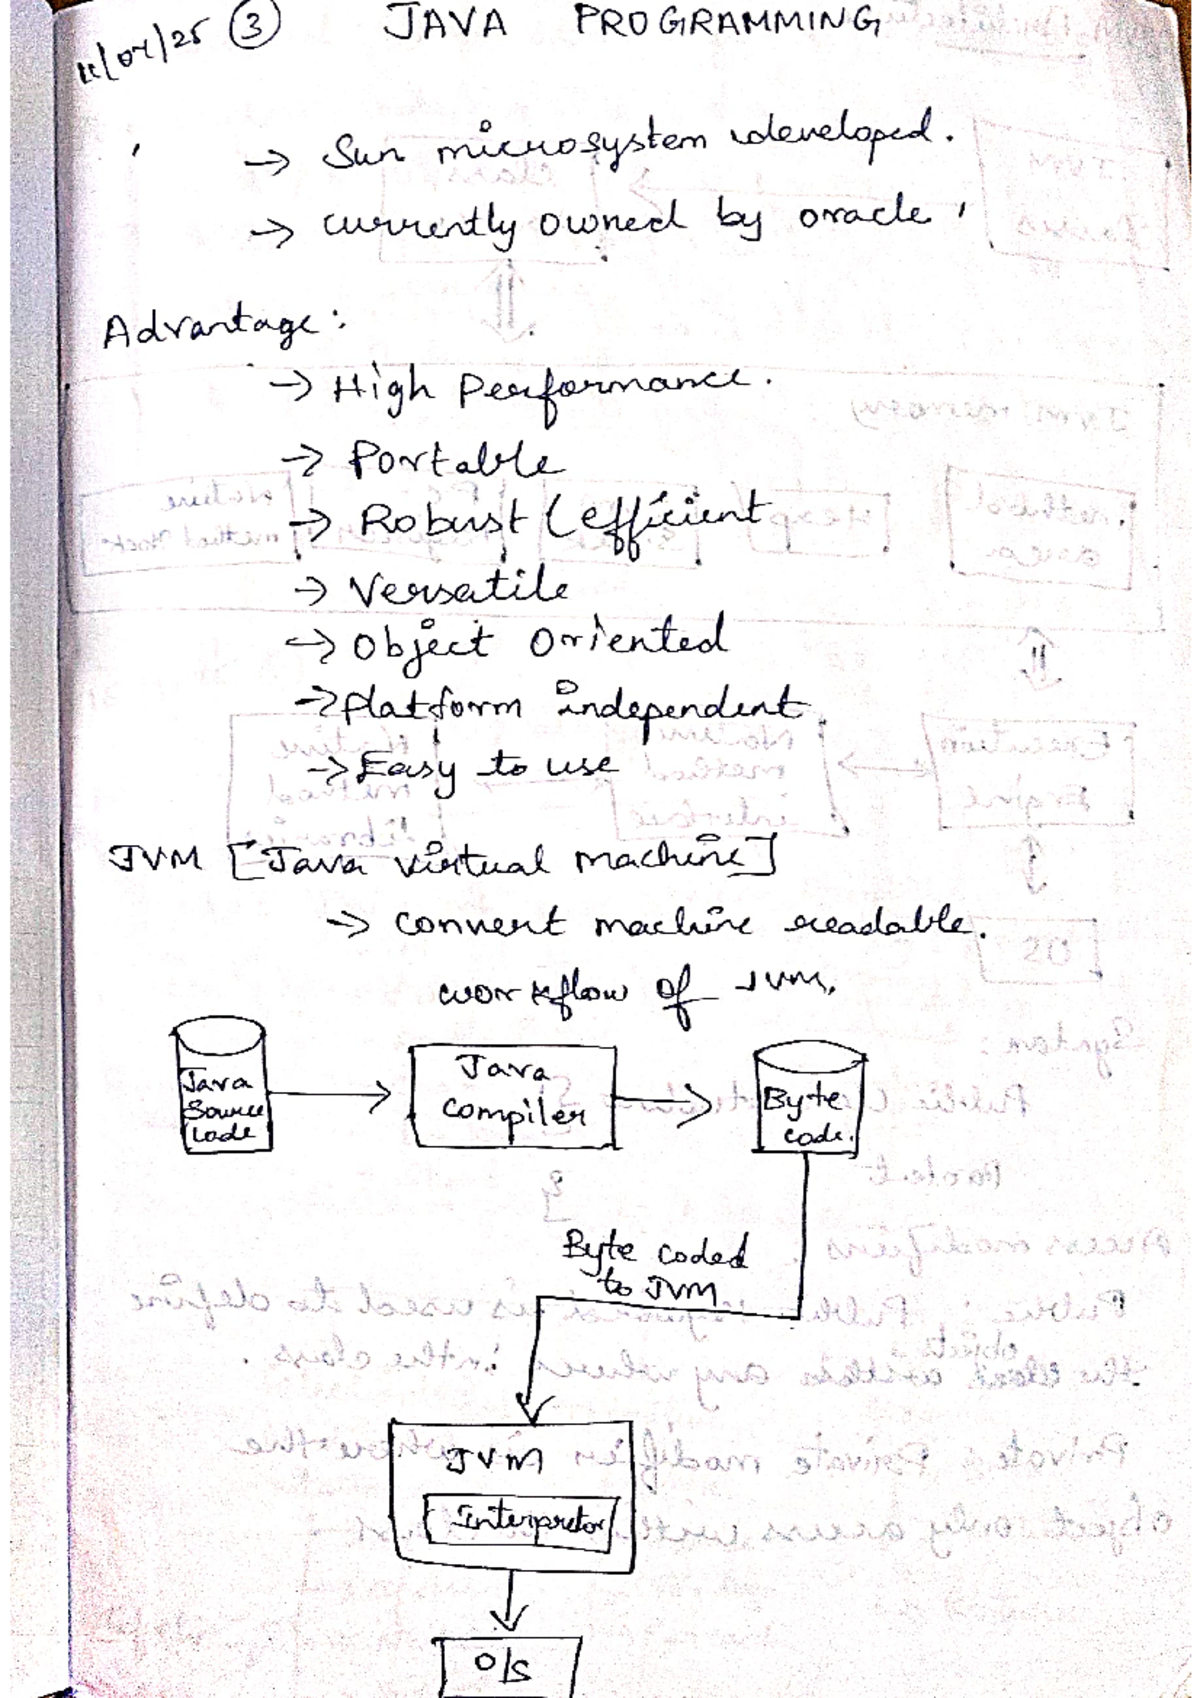 11/04/25 ③ JAVA PROGRAMMING
→ Sun microsystem developed.
→ currently owned by oracle
Advantage:
→ High Performance.
→ Portable
→ Robust (efficient
→ Versatile
→ Object Oriented
→ Platform independent
→ Easy to use
JVM [Java virtual machine]
→ convert machine readable.
workflow of JVM.
Java
Source
Code
Java
Compiler
Byte
code.
Byte coded
to JVM
JVM
Interpretor
O/S